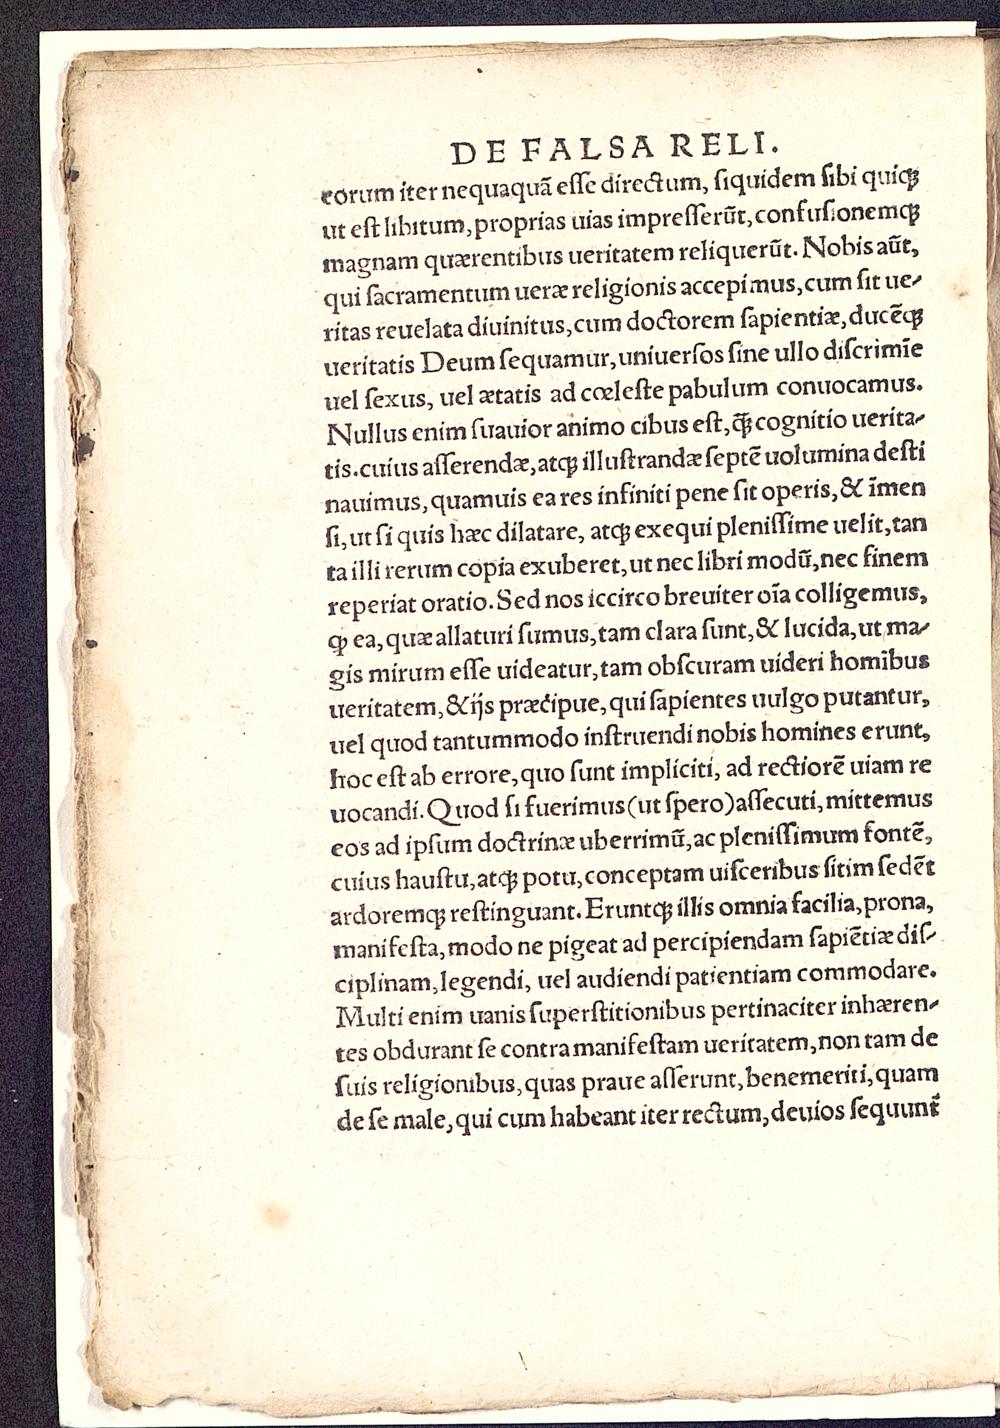 DE FALSA RELI.
eorum iter nequaquã eſſe directum, ſiquidem ſibi quiqꝫ
ut eſt libitum, proprias uias impreſſerũt, confuſionemqꝫ
magnam quærentibus ueritatem reliquerũt. Nobis aũt,
qui ſacramentum ueræ religionis accepimus, cum ſit ue-
ritas reuelata diuinitus, cum doctorem ſapientiæ, ducẽqꝫ
ueritatis Deum ſequamur, uniuerſos ſine ullo diſcrimĩe
uel ſexus, uel ætatis ad cœleſte pabulum conuocamus.
Nullus enim ſuauior animo cibus eſt, ꝙ̃ cognitio uerita-
tis. cuius aſſerendæ, atqꝫ illuſtrandæ ſeptẽ uolumina deſti
nauimus, quamuis ea res infiniti pene ſit operis, & ĩmen
ſi, ut ſi quis hæc dilatare, atqꝫ exequi pleniſſime uelit, tan
ta illi rerum copia exuberet, ut nec libri modũ, nec finem
reperiat oratio. Sed nos iccirco breuiter oĩa colligemus,
ꝙ ea, quæ allaturi ſumus, tam clara ſunt, & lucida, ut ma-
gis mirum eſſe uideatur, tam obſcuram uideri homĩbus
ueritatem, & ijs præcipue, qui ſapientes uulgo putantur,
uel quod tantummodo inſtruendi nobis homines erunt,
hoc eſt ab errore, quo ſunt impliciti, ad rectiorẽ uiam re
uocandi. Quod ſi fuerimus (ut ſpero) aſſecuti, mittemus
eos ad ipſum doctrinæ uberrimũ, ac pleniſſimum fontẽ,
cuius hauſtu, atqꝫ potu, conceptam uiſceribus ſitim ſedẽt
ardoremqꝫ reſtinguant. Eruntqꝫ illis omnia facilia, prona,
manifeſta, modo ne pigeat ad percipiendam ſapiẽtiæ diſ-
ciplinam, legendi, uel audiendi patientiam commodare.
Multi enim uanis ſuperſtitionibus pertinaciter inhæren-
tes obdurant ſe contra manifeſtam ueritatem, non tam de
ſuis religionibus, quas praue aſſerunt, benemeriti, quam
de ſe male, qui cum habeant iter rectum, deuios ſequunt̃